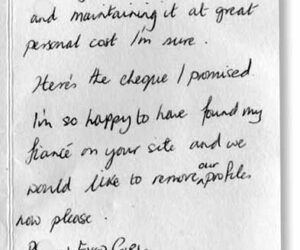 and maintaining it at great
personal cost I'm sure.
Here's the cheque I promised.
I'm so happy to have found my
fiancé on your site and we
would like to remove our profiles
now please.